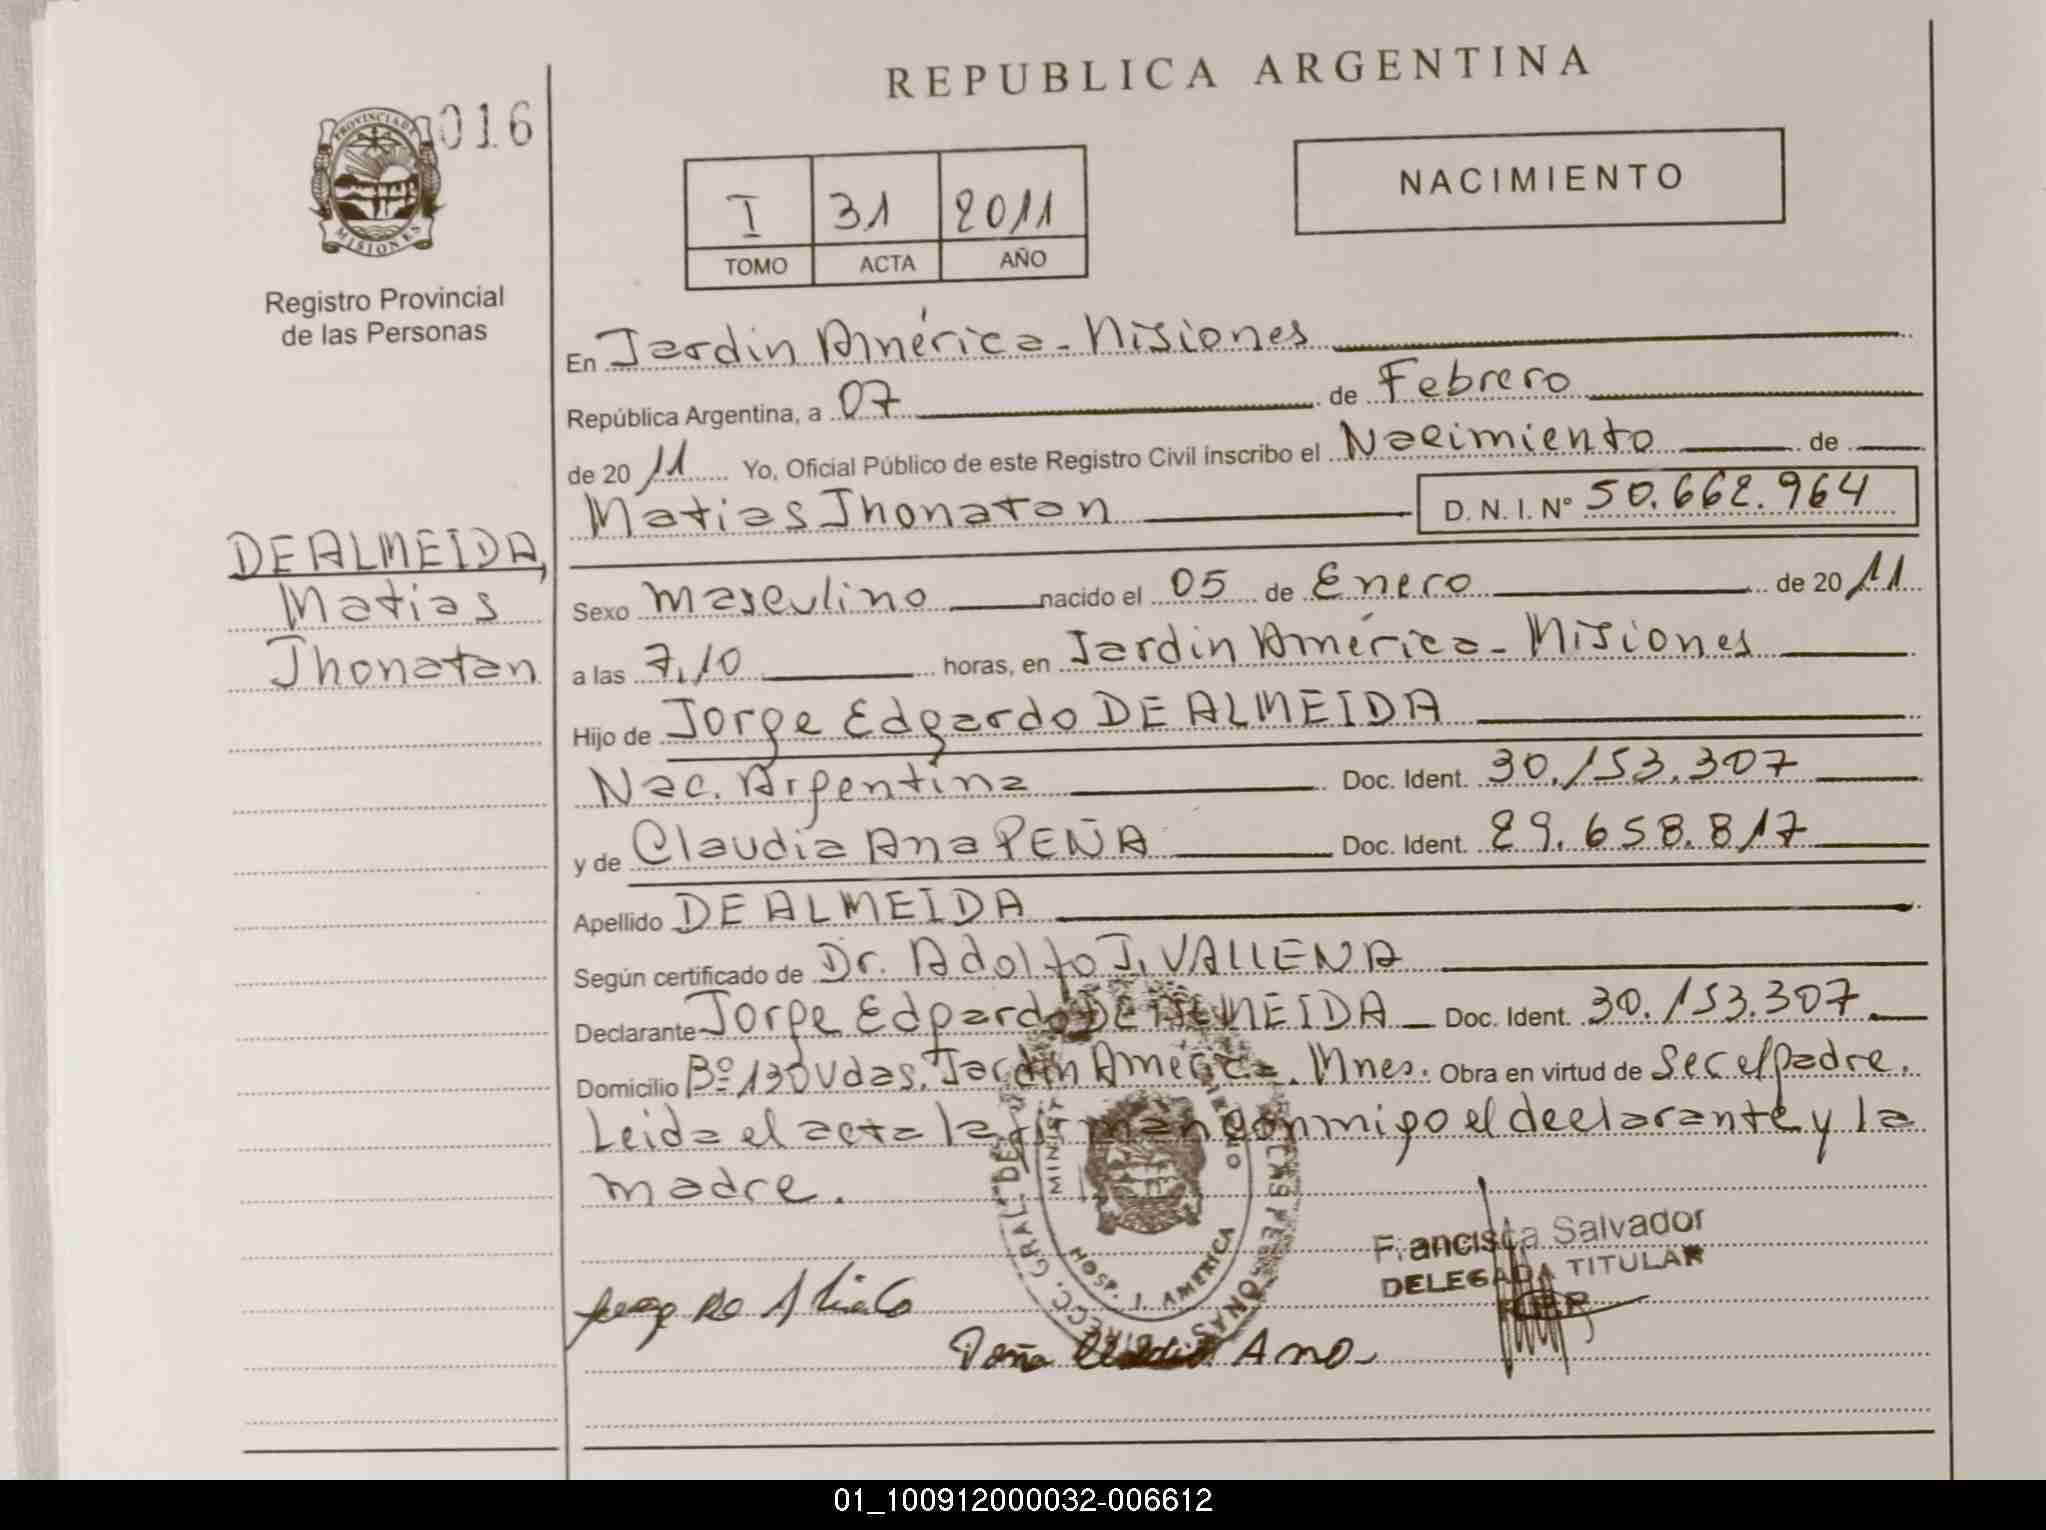 REPUBLICA ARGENTINA
016
PROVINCIA DE MISIONES
Registro Provincial
de las Personas
NACIMIENTO
I 31 2011
TOMO ACTA AÑO
En Jardin América - Misiones
República Argentina, a 07 de Febrero
de 20 11 Yo, Oficial Público de este Registro Civil inscribo el Nacimiento de
Matias Jhonatan D. N. I. N° 50.662.964
DE ALMEIDA,
Matias
Jhonatan
Sexo Masculino nacido el 05 de Enero de 20 11
a las 7,10 horas, en Jardin América - Misiones
Hijo de Jorge Edgardo DE ALMEIDA
Nac. Argentina Doc. Ident. 30.153.307
y de Claudia Ana PEÑA Doc. Ident. 29.658.817
Apellido DE ALMEIDA
Según certificado de Dr. Adolfo J. VALLENA
Declarante Jorge Edgardo DE ALMEIDA Doc. Ident. 30.153.307
Domicilio Bº 130 Vdas. Jardin América. Mnes. Obra en virtud de Ser el padre.
Leida el acta la firman conmigo el declarante y la
madre.
HOSP. J. AMERICA
Francisca Salvador
DELEGADA TITULAR
Peña Claudia Ana
01_100912000032-006612